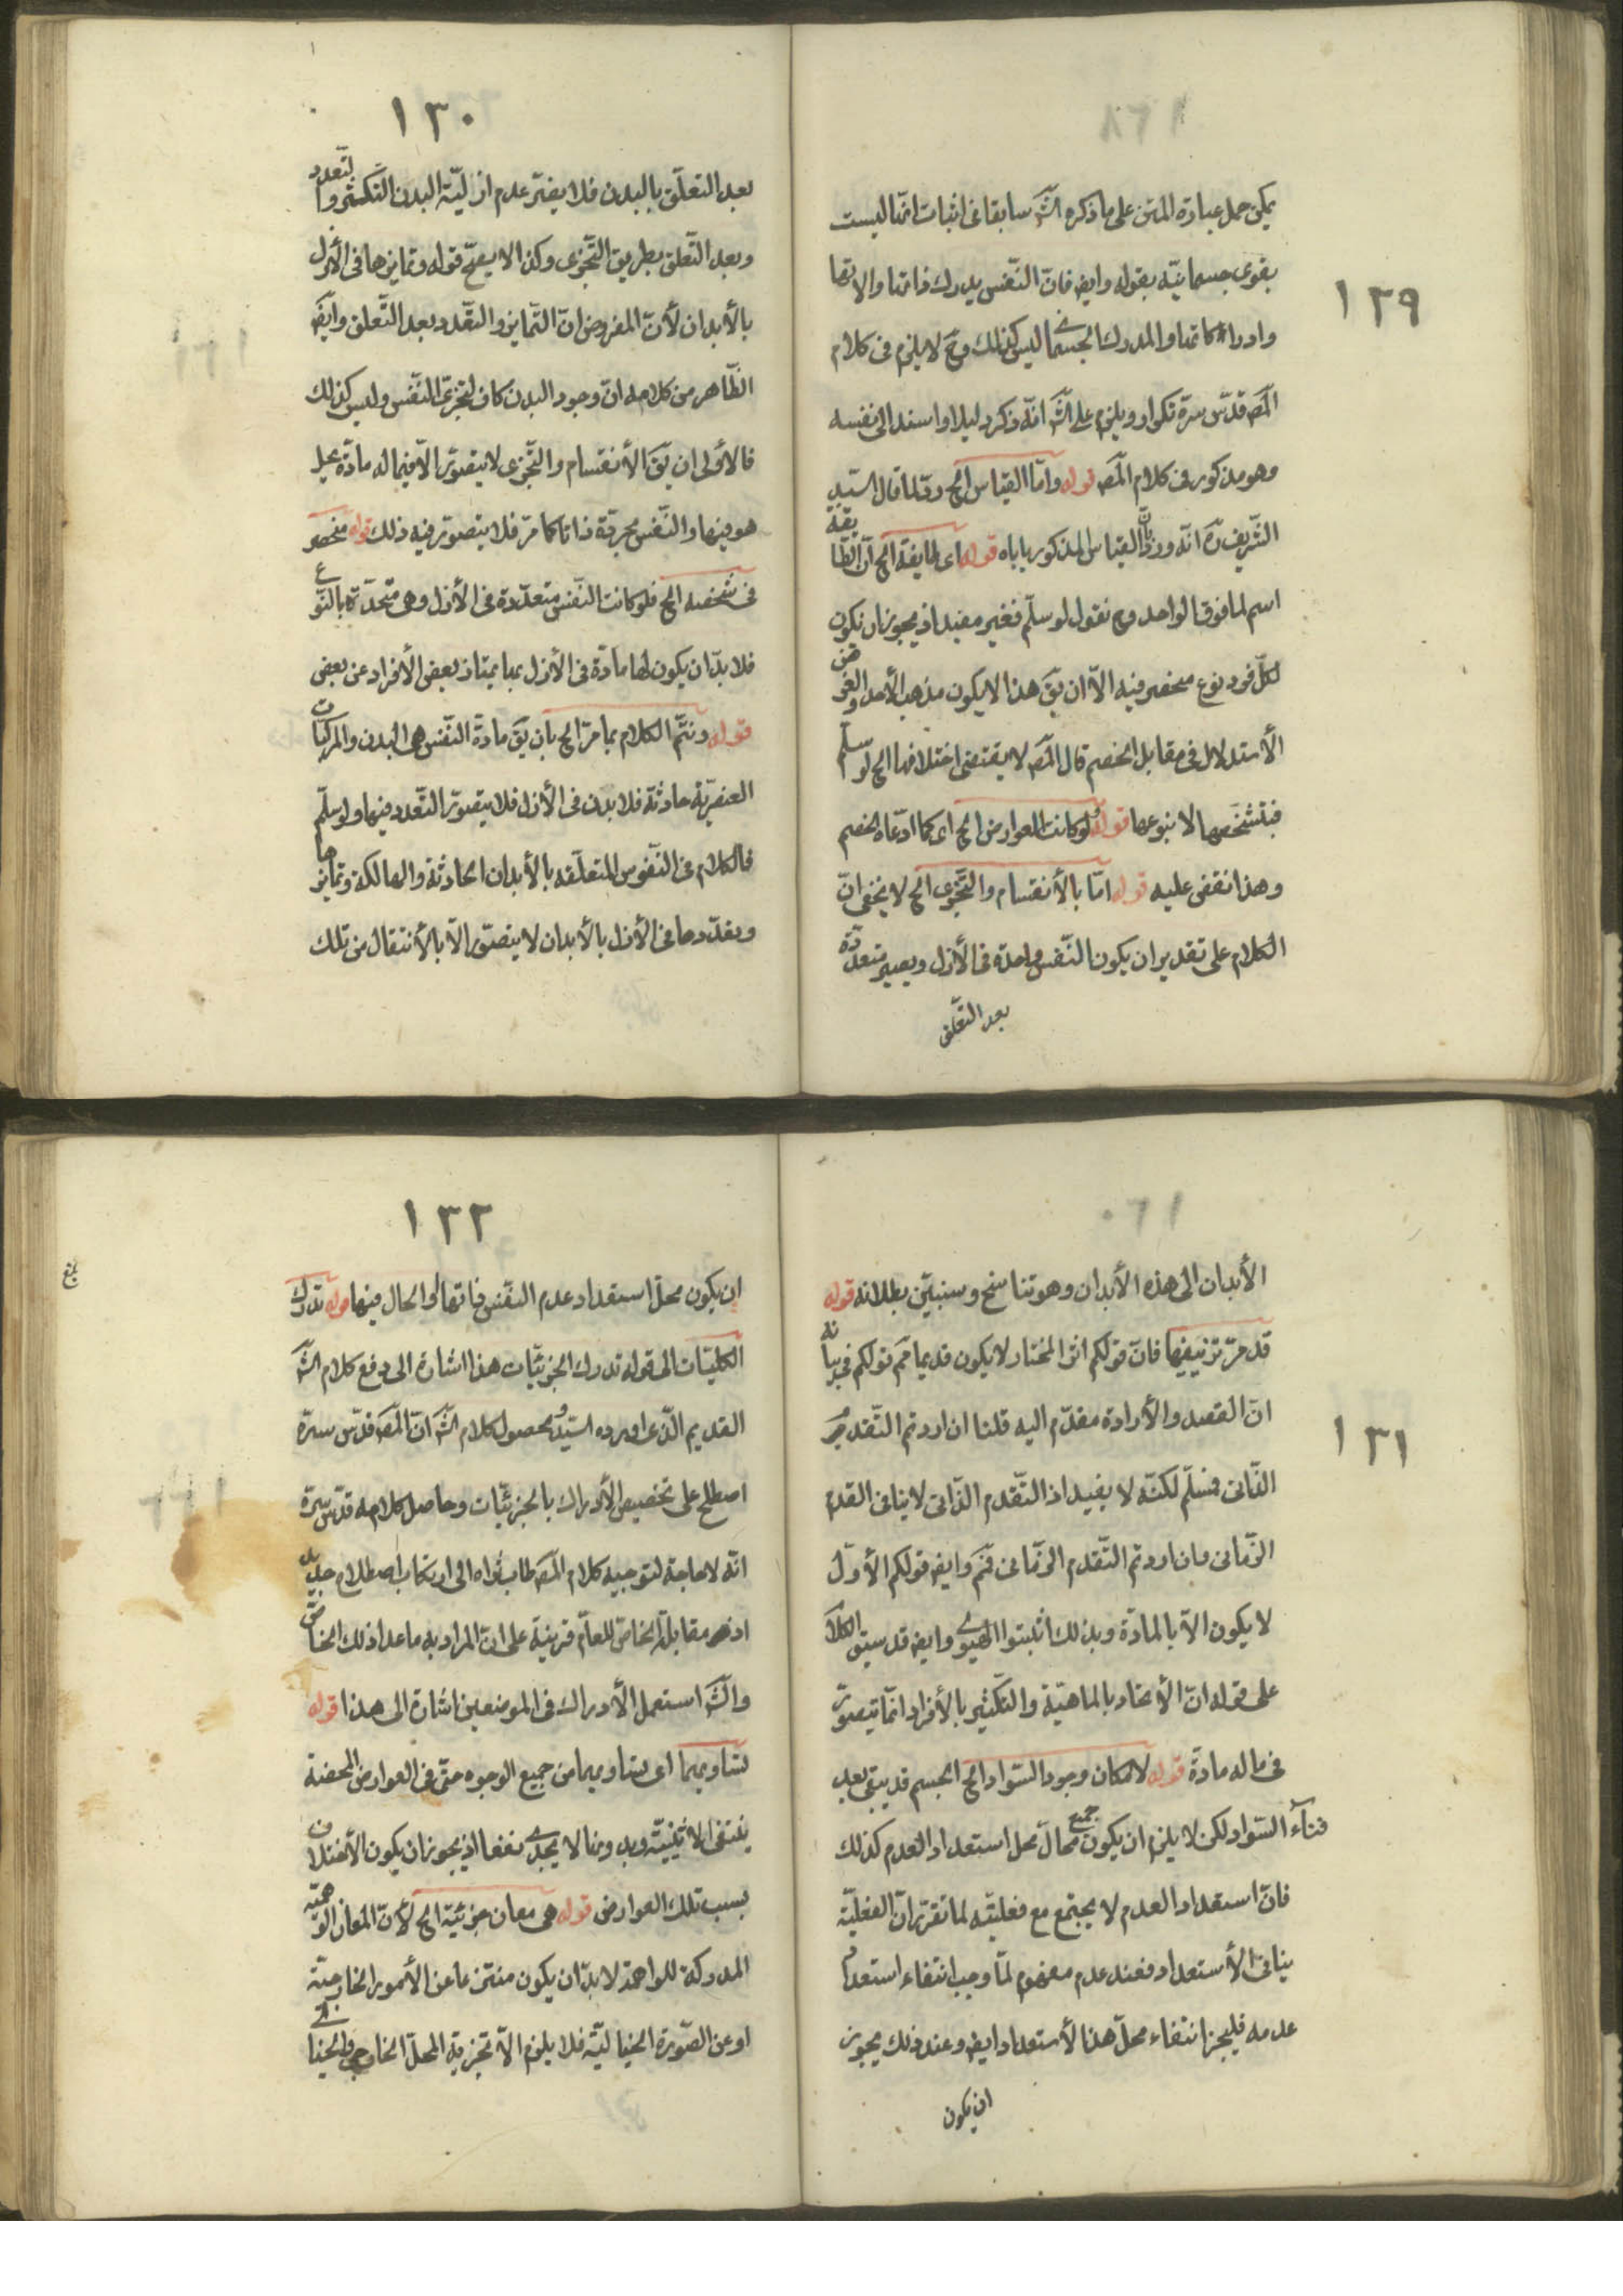 ١٣٩
يمكن حمل عبارة المتن على ما ذكره الشَّ سابقا فى اثبات انها ليست
بقوى جسمانيّة بقوله وايضه فانّ النّفس يدرك ذاتها والاتها
وادراكاتها والمدرك الجسمانى ليس كذلك وحَ لا يلزم فى كلام
المصَ قدّس سرّه تكرار ويلزم على الشَّ انّه ذكر دليلا واسند الى نفسه
وهو مذكور فى كلام المصَ قوله وامّا القياس الخ وقلما قال السّيد
الشّريف ره انّه وزان القياس المذكور ياباه قوله اى طايفة الخ انّ الطايفة
اسم لما فوق الواحد وح نقول لو سلّم فغير مفيد اذ يجوز ان يكون
لكلّ فرد نوع منحصر فيه الاّ ان يقَ هذا لا يكون مذهب الأحد والغرض
الأستدلال فى مقابل الخصم قال المصَ لا يقتضى اختلافها الخ لو سلّم
فبتشخّصها لا بنوعها قوله فلو كانت العوارض الخ اى كما ادّعاه الخصم
وهذا نقض عليه قوله امّا بالأنقسام والتّجزى الخ لا يخفى انّ
الكلام على تقدير ان يكون النّفس واحدة فى الأزل ويصير متعدّدة
بعد التعلّق
١٣٠
بعد التعلّق بالبدن فلا يضرّ عدم ازليّة البدن التّكثّر والتّعدد
وبعد التّعلق بطريق التّجزى وكذا لا يصحّ قوله وتمايزها فى الأزل
بالأبدان لأنّ المفروض انّ التّمايز والتّعدد بعد التّعلق وايضَ
الظّاهر من كلامه انّ وجود البدن كاف لتجزى النّفس وليس كذلك
فالاولى ان يقَ الأنقسام والتّجزى لا يتصوّر الاّ فيما له مادّة يحل
هو فيها والنّفس مجرّدة ذاتا كما مرّ فلا يتصوّر فيه ذلك قوله منحصر
فى شخصه الخ فلو كانت النّفس متعدّدة فى الأزل وهى متحدّة بالنّوع
فلا بدّ ان يكون لها مادّة فى الأزل بها يمتاز بعض الأفراد عن بعض
قوله ونتمّ الكلام بما مرّ الخ بان يقَ مادّة النّفس هى البدن والمركبات
العنصريّة حادثة فلا بدن فى الأزل فلا يتصوّر التّعدد فيها ولو سلّم
فالكلام فى النّفوس المتعلّقه بالأبدان الحادثة والهالكة وتمايزها
وتعدّدها فى الأزل بالأبدان لا يتصوّر الاّ بالأنتقال من تلك
١٣١
الأبدان الى هذه الأبدان وهو تناسخ وسنبيّن بطلانه قوله
قد مرّ تزييفها فانّ قولكم اثر المختار لا يكون قديما ثَم قولكم فى بيانه
انّ القصد والأرادة مقدّم اليه قلنا ان اردتم التّقدم
الذّاتى فسلّم لكنّه لا يفيد اذ التّقدم الذّاتى لا ينافى القدم
الزّمانى وان اردتم التّقدم الزّمانى فَمَ وايضه قولكم الأوّل
لا يكون الاّ بالمادّة وبذلك اثبتوا الهيولى وايضه قد سبق الكلام
على قوله انّ الأتحاد بالماهيّة والتكثير بالأفراد انّما يتصوّر
فى ماله مادّة قوله لامكان وجود السّواد الخ الجسم قد يبقى بعد
فناء السّواد لكن لا يلزم ان يكون جميع محالّ محل استعداد العدم كذلك
فانّ استعداد العدم لا يجتمع مع فعليّته لما تقرّر انّ الفعليّة
ينافى الأستعداد فعند عدم مفهوم لمّا وجب انتفاء استعداد
عدمه فليجز انتفاء محلّ هذا الأستعداد ايضه وعند ذلك يجوز
ان يكون
١٣٢
ان يكون محلّ استعداد عدم النّفس ذاتها او الحال فيها قوله تدرك
الكليّات الى قوله تدرك الجزئيّات هذا اشارة الى دفع كلام الشَّ
القديم الّذى اورده السّيد ومحصول كلام الشَّ انّ المصَ قدّس سرّه
اصطلح على تخصيص الأدراك بالجزئيّات وحاصل كلامه قدّس سرّه
انّه لا حاجة لتوجيه كلام المصَ طاب ثراه الى ارتكاب اصطلاح جديد
اذ مقابلة الخاص للعامّ قرينة على انّ المراد به ما عدا ذلك الخاصّ
والشَّ استعمل الأدراك فى الموضعين اشارة الى هذا قوله
تساويهما اى تساويهما من جميع الوجوه حتّى فى العوارض المحضة
ينتفى الاثنينيّة وبدونها لا يجدى نفعا اذ يجوز ان يكون الأختلاف
بسبب تلك العوارض قوله هى معان جزئيّة الخ لأنّ المعان الوهميّة
المدركة للواهمة لا بدّ ان يكون منتزعا عن الأمور الخارجيّة
او عن الصّورة الخياليّة فلا يلزم الاّ تجزية المحلّ الخارجى والخيالى